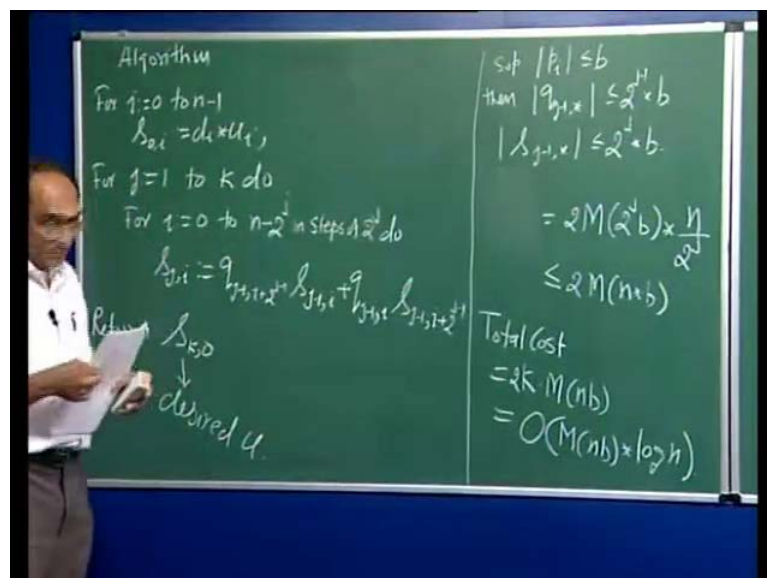 Algorithm
For i=0 to n-1
S₀ᵢ = dᵢ * uᵢ,
For j=1 to K do
For i=0 to n-2ʲ in steps of 2ʲ do
S_{j,i} := q_{j-1,i+2^{j-1}} S_{j-1,i} + q_{j-1,i} S_{j-1,i+2^{j-1}}
Return S_{K,0}
↓
desired u.
Sup |pᵢ| ≤ b
then |q_{j-1,*}| ≤ 2^{j-1} * b
|S_{j-1,*}| ≤ 2^j * b.
= 2M(2^j b) * n/2^j
≤ 2M(n*b)
Total Cost
= 2K · M(nb)
= O(M(nb) * log n)